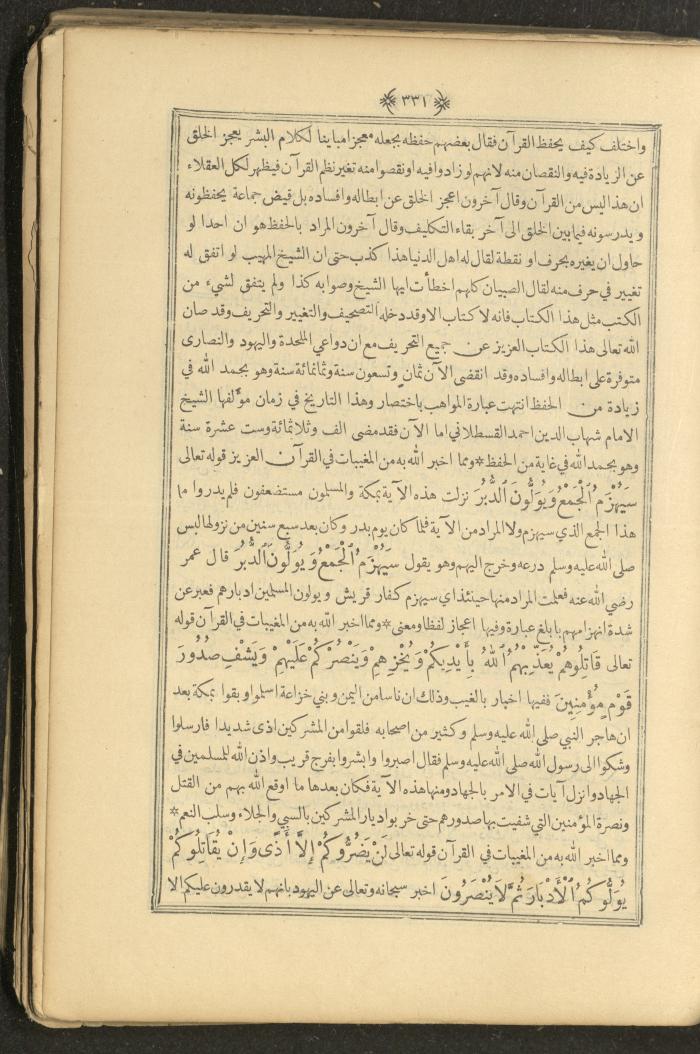 ٣٣١
واختلف كيف يحفظ القرآن فقال بعضهم حفظه بجعله معجزا مباينا لكلام البشر يعجز الخلق
عن الزيادة فيه والنقصان منه لانهم لو زادوا فيه او نقصوا منه تغير نظم القرآن فيظهر لكل العقلاء
ان هذا ليس من القرآن وقال آخرون اعجز الخلق عن ابطاله وافساده بل قيض جماعة يحفظونه
ويدرسونه فيما بين الخلق الى آخر بقاء التكليف وقال آخرون المراد بالحفظ هو ان احدا لو
حاول ان يغيره بحرف او نقطة لقال له اهل الدنيا هذا كذب حتى ان الشيخ المهيب لو اتفق له
تغيير في حرف منه لقال الصبيان كلهم اخطأت ايها الشيخ وصوابه كذا ولم يتفق لشيء من
الكتب مثل هذا الكتاب فانه لا كتاب الا وقد دخله التصحيف والتغيير والتحريف وقد صان
الله تعالى هذا الكتاب العزيز عن جميع التحريف مع ان دواعي الملحدة واليهود والنصارى
متوفرة على ابطاله وافساده وقد انقضى الآن ثمان وتسعون سنة وثمانمائة سنة وهو بحمد الله في
زيادة من الحفظ انتهت عبارة المواهب باختصار وهذا التاريخ في زمان مؤلفها الشيخ
الامام شهاب الدين احمد القسطلاني اما الآن فقد مضى الف وثلاثمائة وست عشرة سنة
وهو بحمد الله في غاية من الحفظ * ومما اخبر الله به من المغيبات في القرآن العزيز قوله تعالى
سَيُهْزَمُ ٱلْجَمْعُ وَيُوَلُّونَ ٱلدُّبُرَ نزلت هذه الآية بمكة والمسلمون مستضعفون فلم يدروا ما
هذا الجمع الذي سيهزم ولا المراد من الآية فلما كان يوم بدر وكان بعد سبع سنين من نزولها لبس
صلى الله عليه وسلم درعه وخرج اليهم وهو يقول سَيُهْزَمُ ٱلْجَمْعُ وَيُوَلُّونَ ٱلدُّبُرَ قال عمر
رضي الله عنه فعلمت المراد منها حينئذ اي سيهزم كفار قريش ويولون المسلمين ادبارهم فعبر عن
شدة انهزامهم بابلغ عبارة وفيها اعجاز لفظا ومعنى * ومما اخبر الله به من المغيبات في القرآن قوله
تعالى قَاتِلُوهُمْ يُعَذِّبْهُمُ ٱللهُ بِأَيْدِيكُمْ وَيُخْزِهِمْ وَيَنْصُرْكُمْ عَلَيْهِمْ وَيَشْفِ صُدُورَ
قَوْمٍ مُؤْمِنِينَ ففيها اخبار بالغيب وذلك ان ناسا من اليمن وبني خزاعة اسلموا وبقوا بمكة بعد
ان هاجر النبي صلى الله عليه وسلم وكثير من اصحابه فلقوا من المشركين اذى شديدا فارسلوا
وشكوا الى رسول الله صلى الله عليه وسلم فقال اصبروا وابشروا بفرج قريب واذن الله للمسلمين في
الجهاد وانزل آيات في الامر بالجهاد ومنها هذه الآية فكان بعدها ما اوقع الله بهم من القتل
ونصرة المؤمنين التي شفيت بها صدورهم حتى خربوا ديار المشركين بالسبي والجلاء وسلب النعم *
ومما اخبر الله به من المغيبات في القرآن قوله تعالى لَنْ يَضُرُّوكُمْ إِلَّا أَذًى وَإِنْ يُقَاتِلُوكُمْ
يُوَلُّوكُمُ ٱلْأَدْبَارَ ثُمَّ لَا يُنْصَرُونَ اخبر سبحانه وتعالى عن اليهود بانهم لا يقدرون عليكم الا